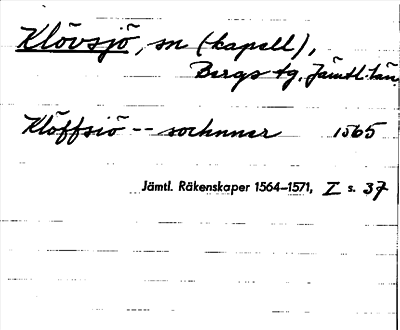 Klövsjö, sn (kapell),
Bergs tg, Jämtl. län.
Klöffsiö -- sochnner 1565
Jämtl. Räkenskaper 1564–1571, I s. 37